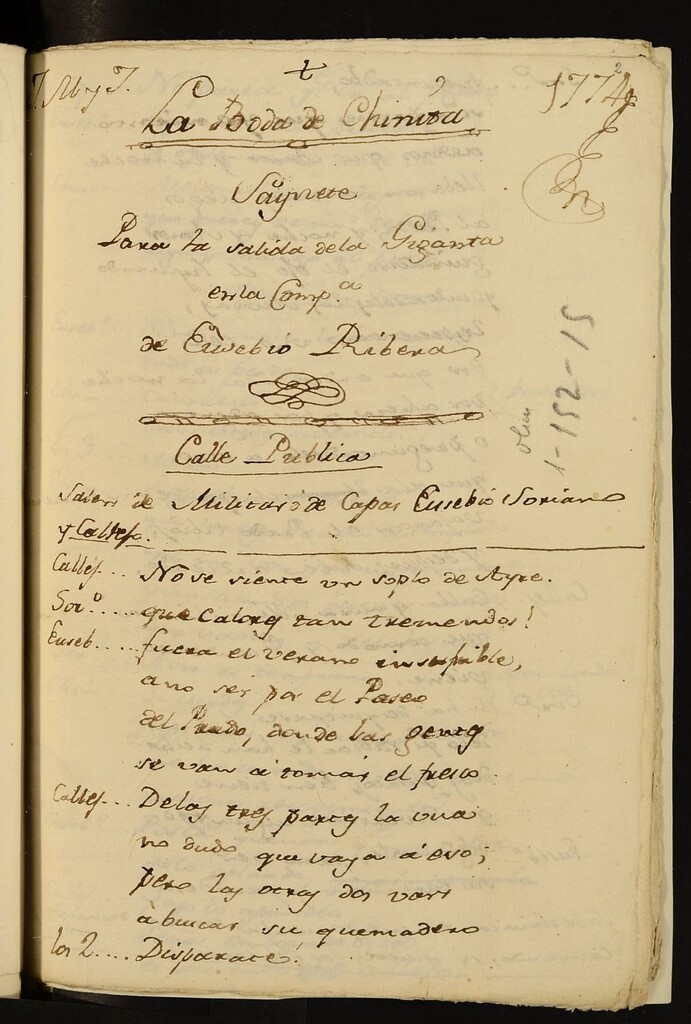 1774
La Boda de Chinita
Saynete
Para la salida dela Giganta
en la Comp.ª
de Eusebio Ribera
1-152-15
Calle Publica
Salen de Militar de Capas Eusebio Soriano
y Callejo.
Callej... No se siente un soplo de Ayre.
Sor.º.... que Calores tan tremendos!
Euseb.... fuera el verano insufrible,
a no ser por el Paseo
del Prado, donde las gentes
se van á tomar el fresco
Callej... Delas tres partes la una
no dudo que vaya á eso;
pero las otras dos van
á buscar su quemadero
los 2.... Disparate!